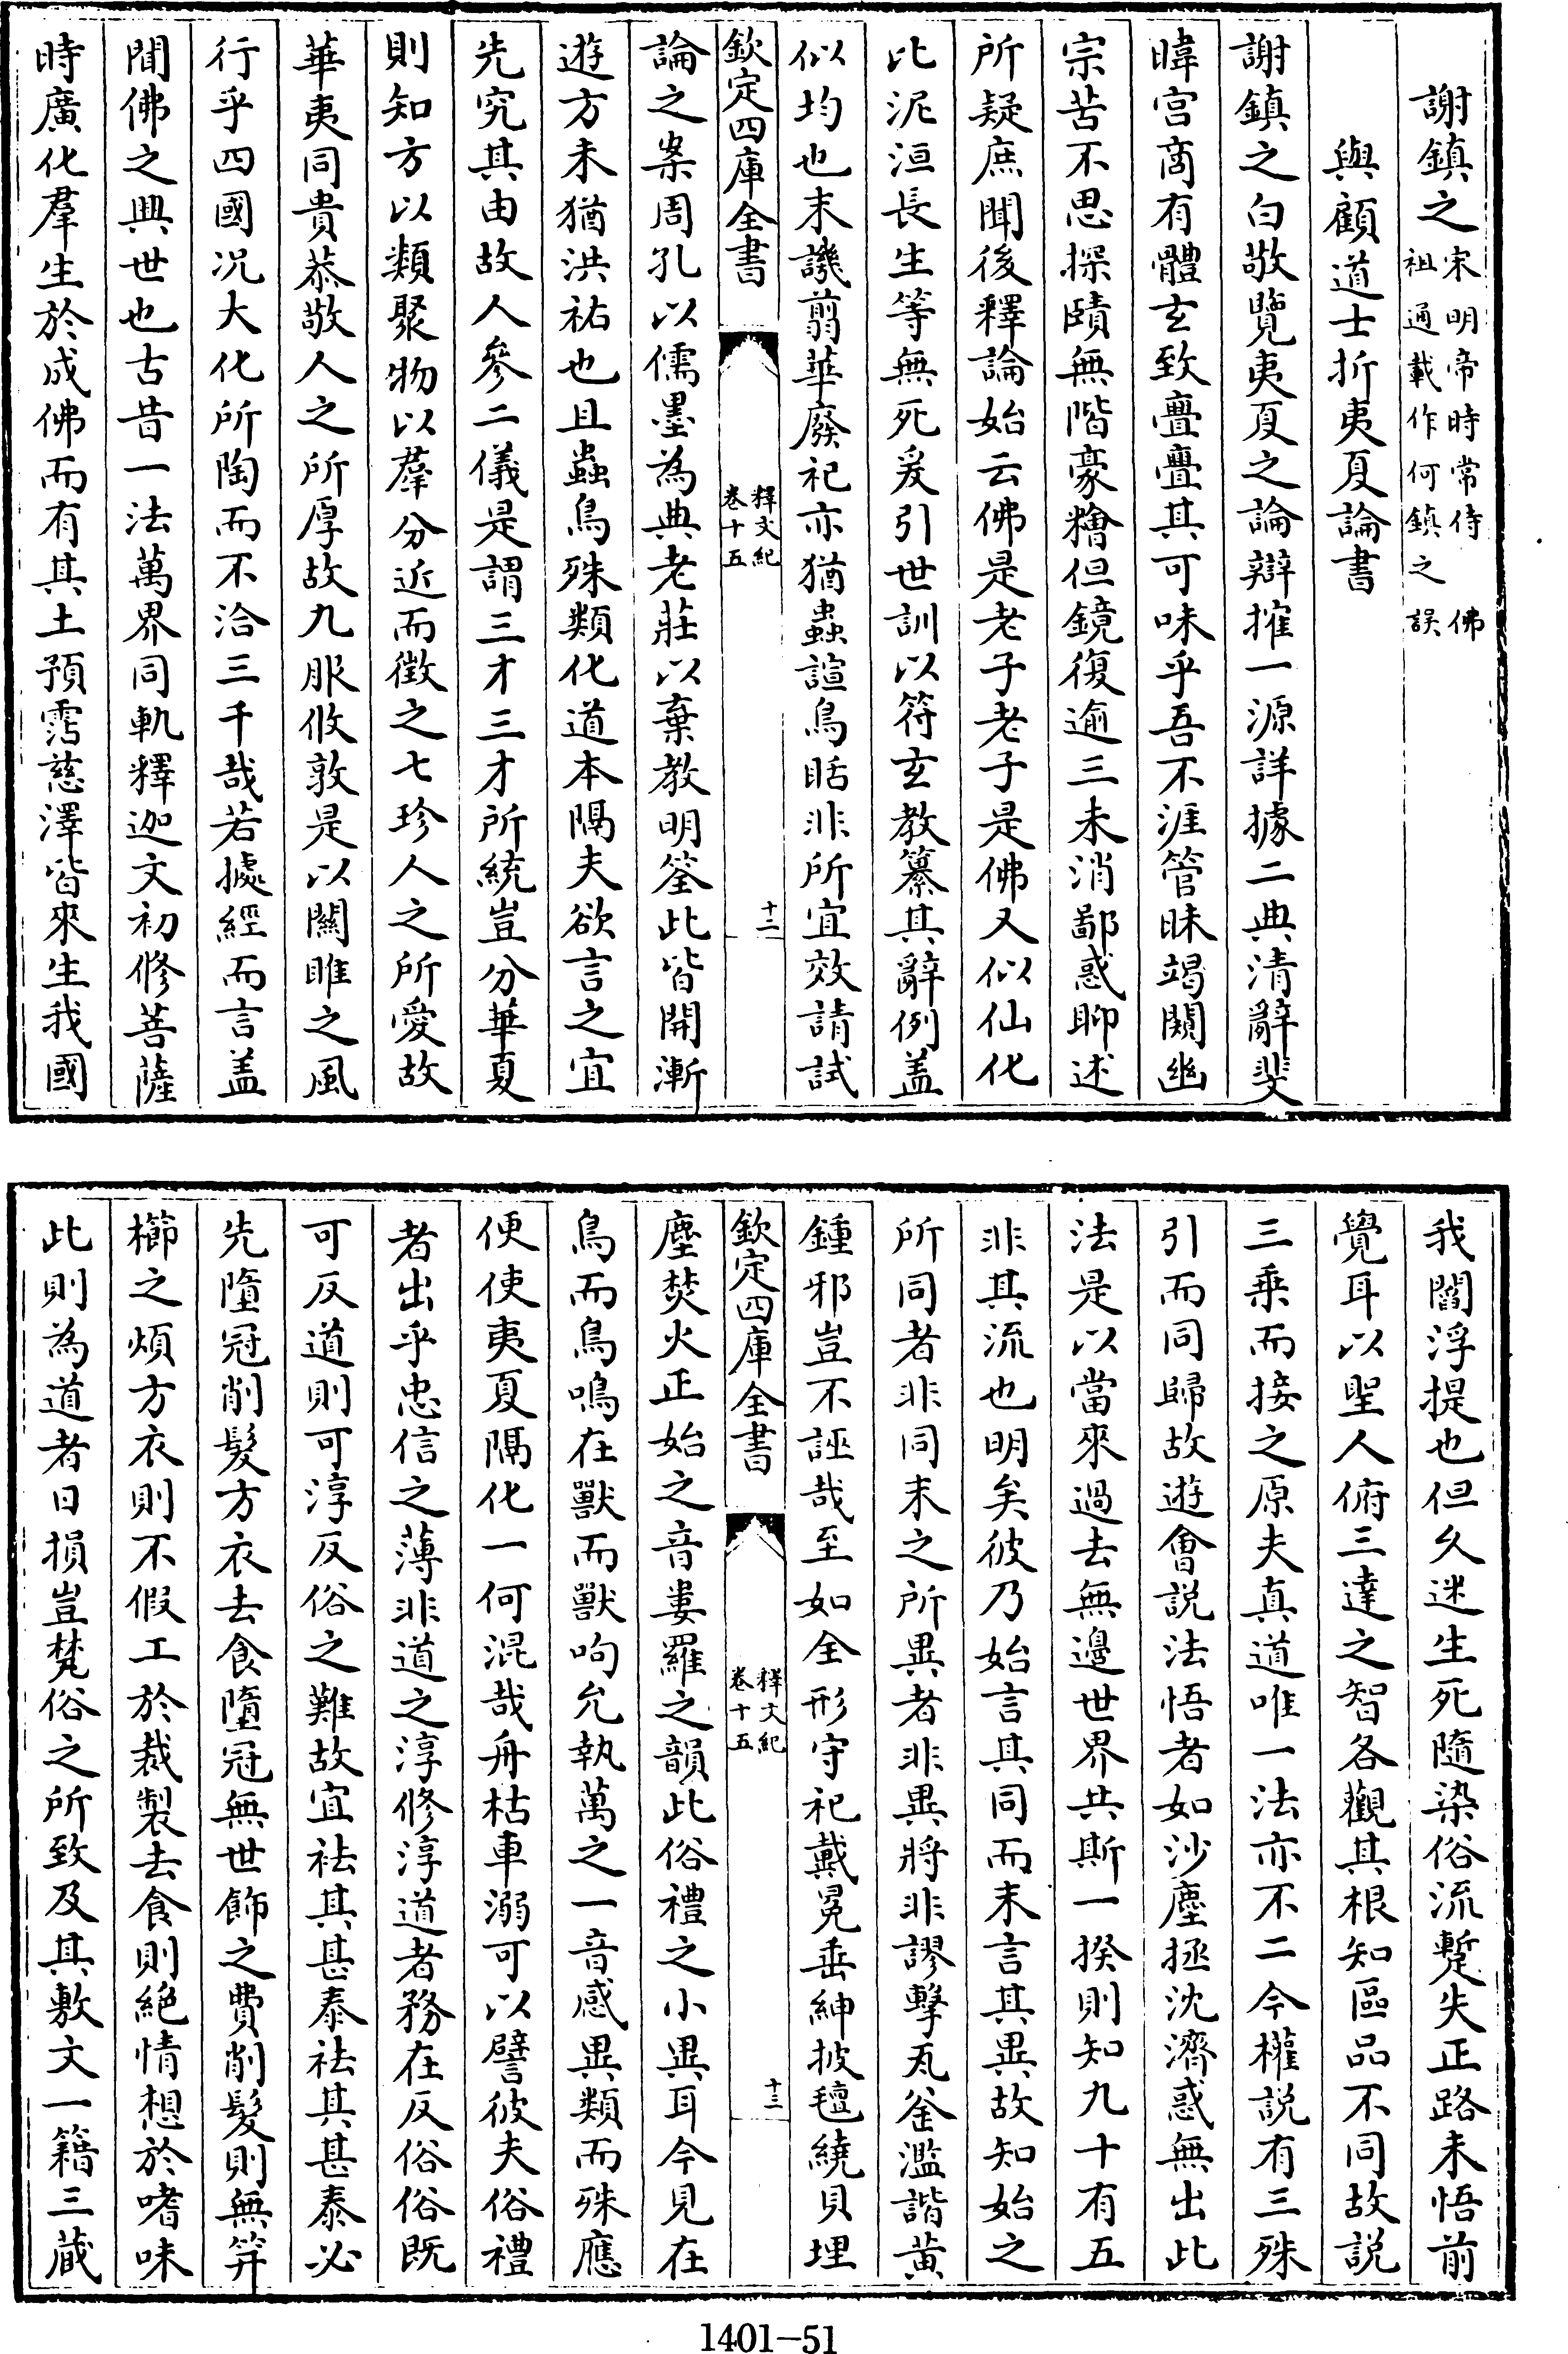 謝鎮之宋明帝時常侍 佛
祖通載作何鎮之誤
與顧道士折夷夏論書
謝鎮之白敬覽夷夏之論辯搉一源詳據二典清辭斐
暐宫商有體玄致亹亹其可味乎吾不涯管昧竭闚幽
宗苦不思探賾無階豪糩但鏡復逾三未消鄙惑聊述
所疑庶聞後釋論始云佛是老子老子是佛又似仙化
比泥洹長生等無死爰引世訓以符玄教纂其辭例盖
似均也末譏翦華廢祀亦猶蟲諠鳥聒非所宜效請試
欽定四庫全書
釋文紀
卷十五
十二
論之案周孔以儒墨為典老莊以棄教明筌此皆開漸
遊方未猶洪祐也且蟲鳥殊類化道本隔夫欲言之宜
先究其由故人參二儀是謂三才三才所統豈分華夏
則知方以類聚物以羣分近而徵之七珍人之所愛故
華夷同貴恭敬人之所厚故九服攸敦是以關雎之風
行乎四國况大化所陶而不洽三千哉若據經而言盖
聞佛之興世也古昔一法萬界同軌釋迦文初修菩薩
時廣化羣生於成佛而有其土預霑慈澤皆來生我國
我閻浮提也但久迷生死隨染俗流蹔失正路未悟前
覺耳以聖人俯三達之智各觀其根知區品不同故説
三乗而接之原夫真道唯一法亦不二今權説有三殊
引而同歸故遊會説法悟者如沙塵拯沈濟惑無出此
法是以當來過去無邊世界共斯一揆則知九十有五
非其流也明矣彼乃始言其同而末言其異故知始之
所同者非同末之所異者非異將非謬擊瓦釜濫諧黄
鍾邪豈不誣哉至如全形守祀戴冕垂紳披氊繞貝埋
欽定四庫全書
釋文紀
卷十五
十三
塵焚火正始之音婁羅之韻此俗禮之小異耳今見在
鳥而鳥鳴在獸而獸呴允執萬之一音感異類而殊應
便使夷夏隔化一何混哉舟枯車溺可以譬彼夫俗禮
者出乎忠信之薄非道之淳修淳道者務在反俗俗既
可反道則可淳反俗之難故宜祛其甚泰祛其甚泰必
先墮冠削髮方衣去食墮冠無世飾之費削髮則無笄
櫛之煩方衣則不假工於裁製去食則絶情想於嗜味
此則為道者日損豈梵俗之所致及其敷文一籍三藏
1401-51